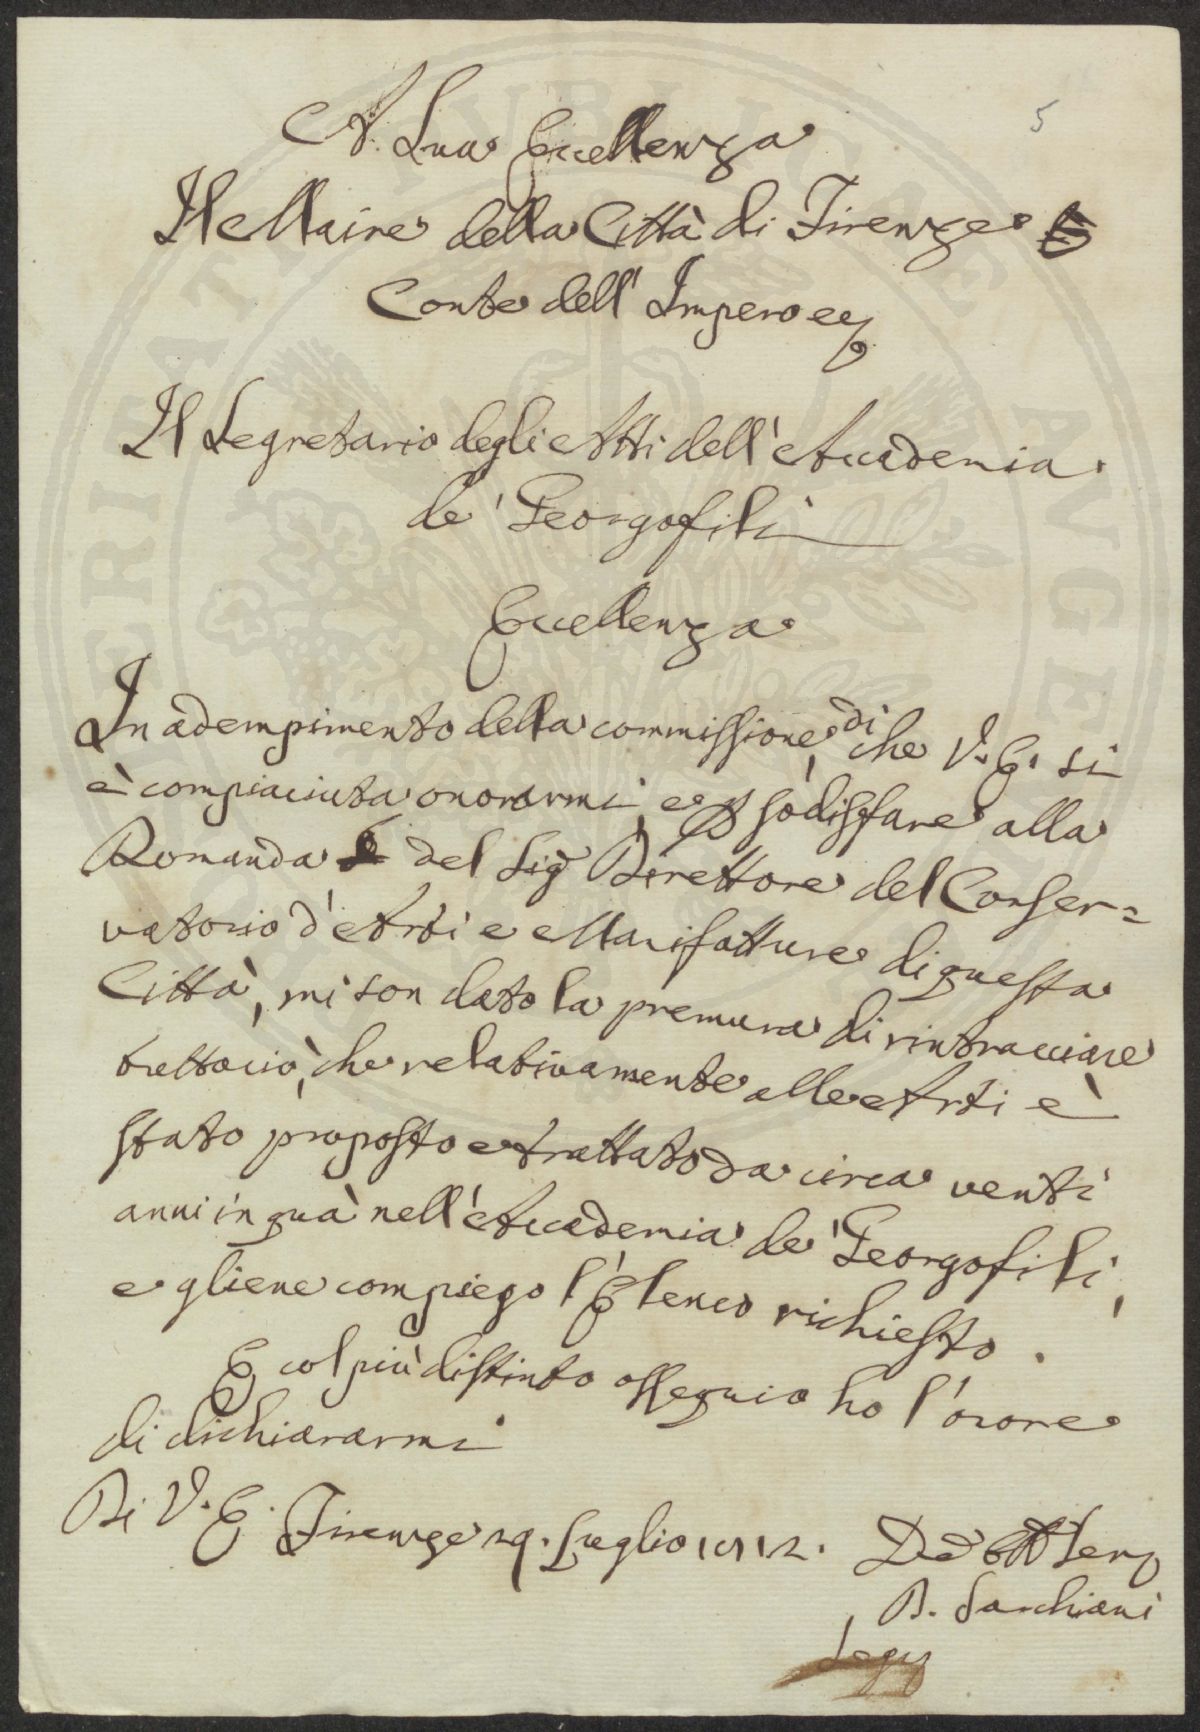 5
A Sua Eccellenza
Il Maire della Città di Firenze
Conte dell' Impero ec
Il Segretario degli Atti dell' Accademia
de' Georgofili
Eccellenza
In adempimento della commissione, di che V. E. si
è compiaciuta onorarmi, e p sodisfare alla
Domanda del Sig Direttore del Conser=
vatorio d'Arti e Manifatture di questa
Città, mi son dato la premura di rintracciare
tuttociò, che relativamente alle Arti è
stato proposto e trattato da circa venti
anni in quà nell' Accademia de' Georgofili,
e gliene compiego l'Elenco richiesto.
E col più distinto ossequio ho l'onore
di dichiararmi
Di V. E. Firenze 29. Luglio 1812.
D. Sarchiani
Seg